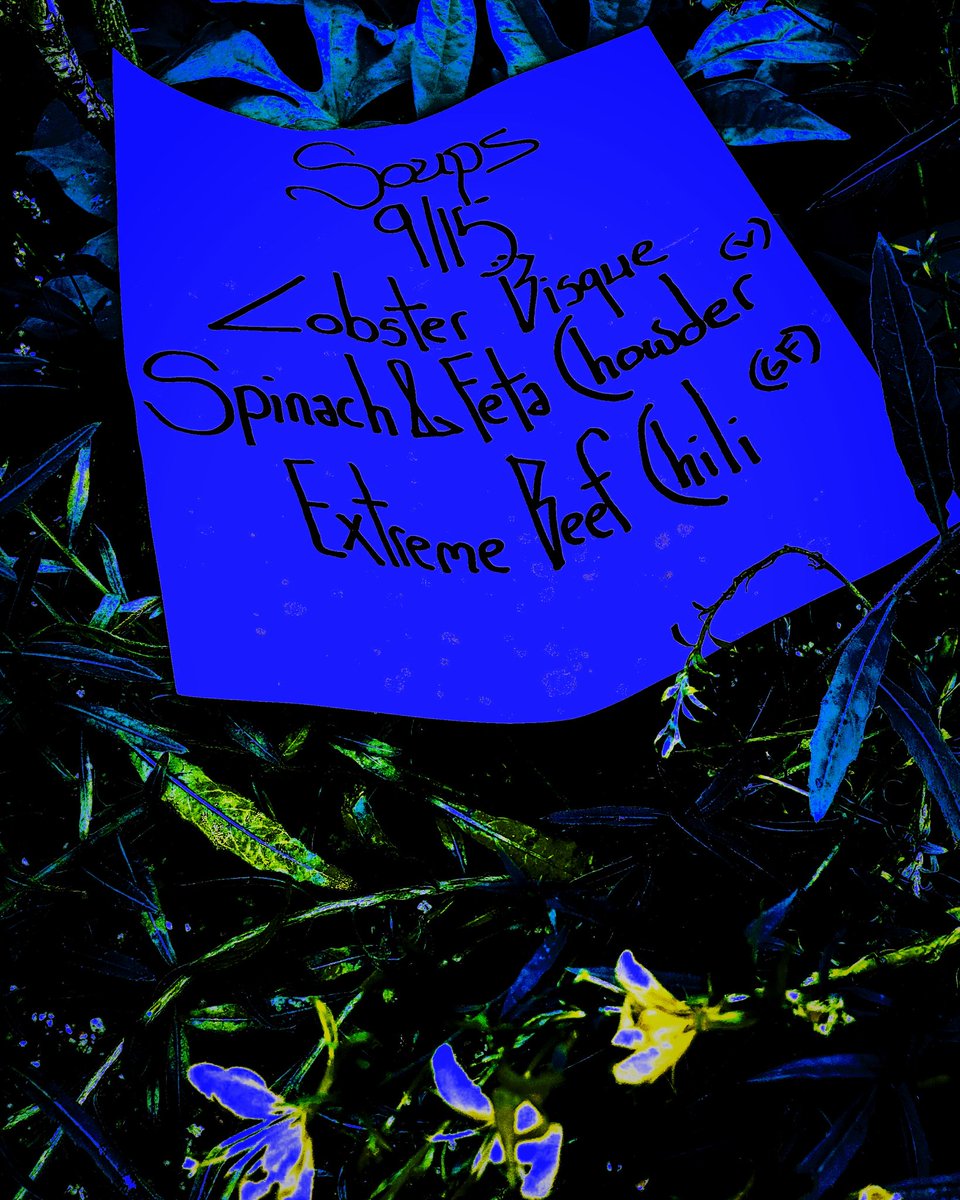 Soups
9/15
Lobster Bisque
Spinach & Feta Chowder (V)
Extreme Beef Chili (GF)